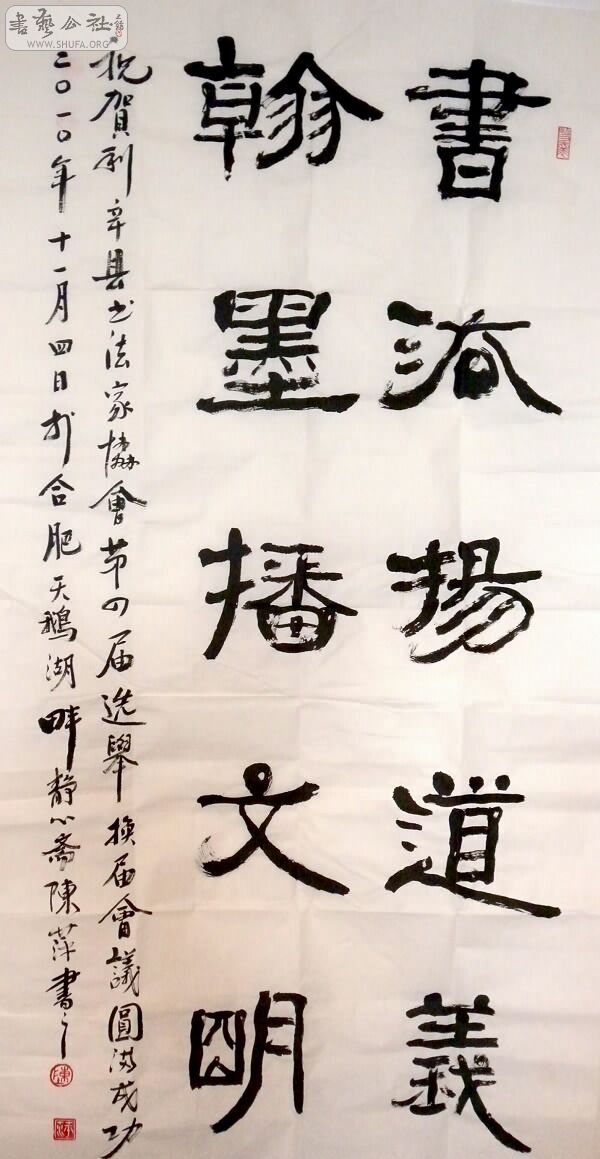 書藝公社
WWW.SHUFA.ORG
書海揚道義
翰墨播文明
祝賀利辛县书法家協會第四届选舉换届會議圓满成功
二〇一〇年十一月四日於合肥天鵝湖畔静心斋陳萍書之